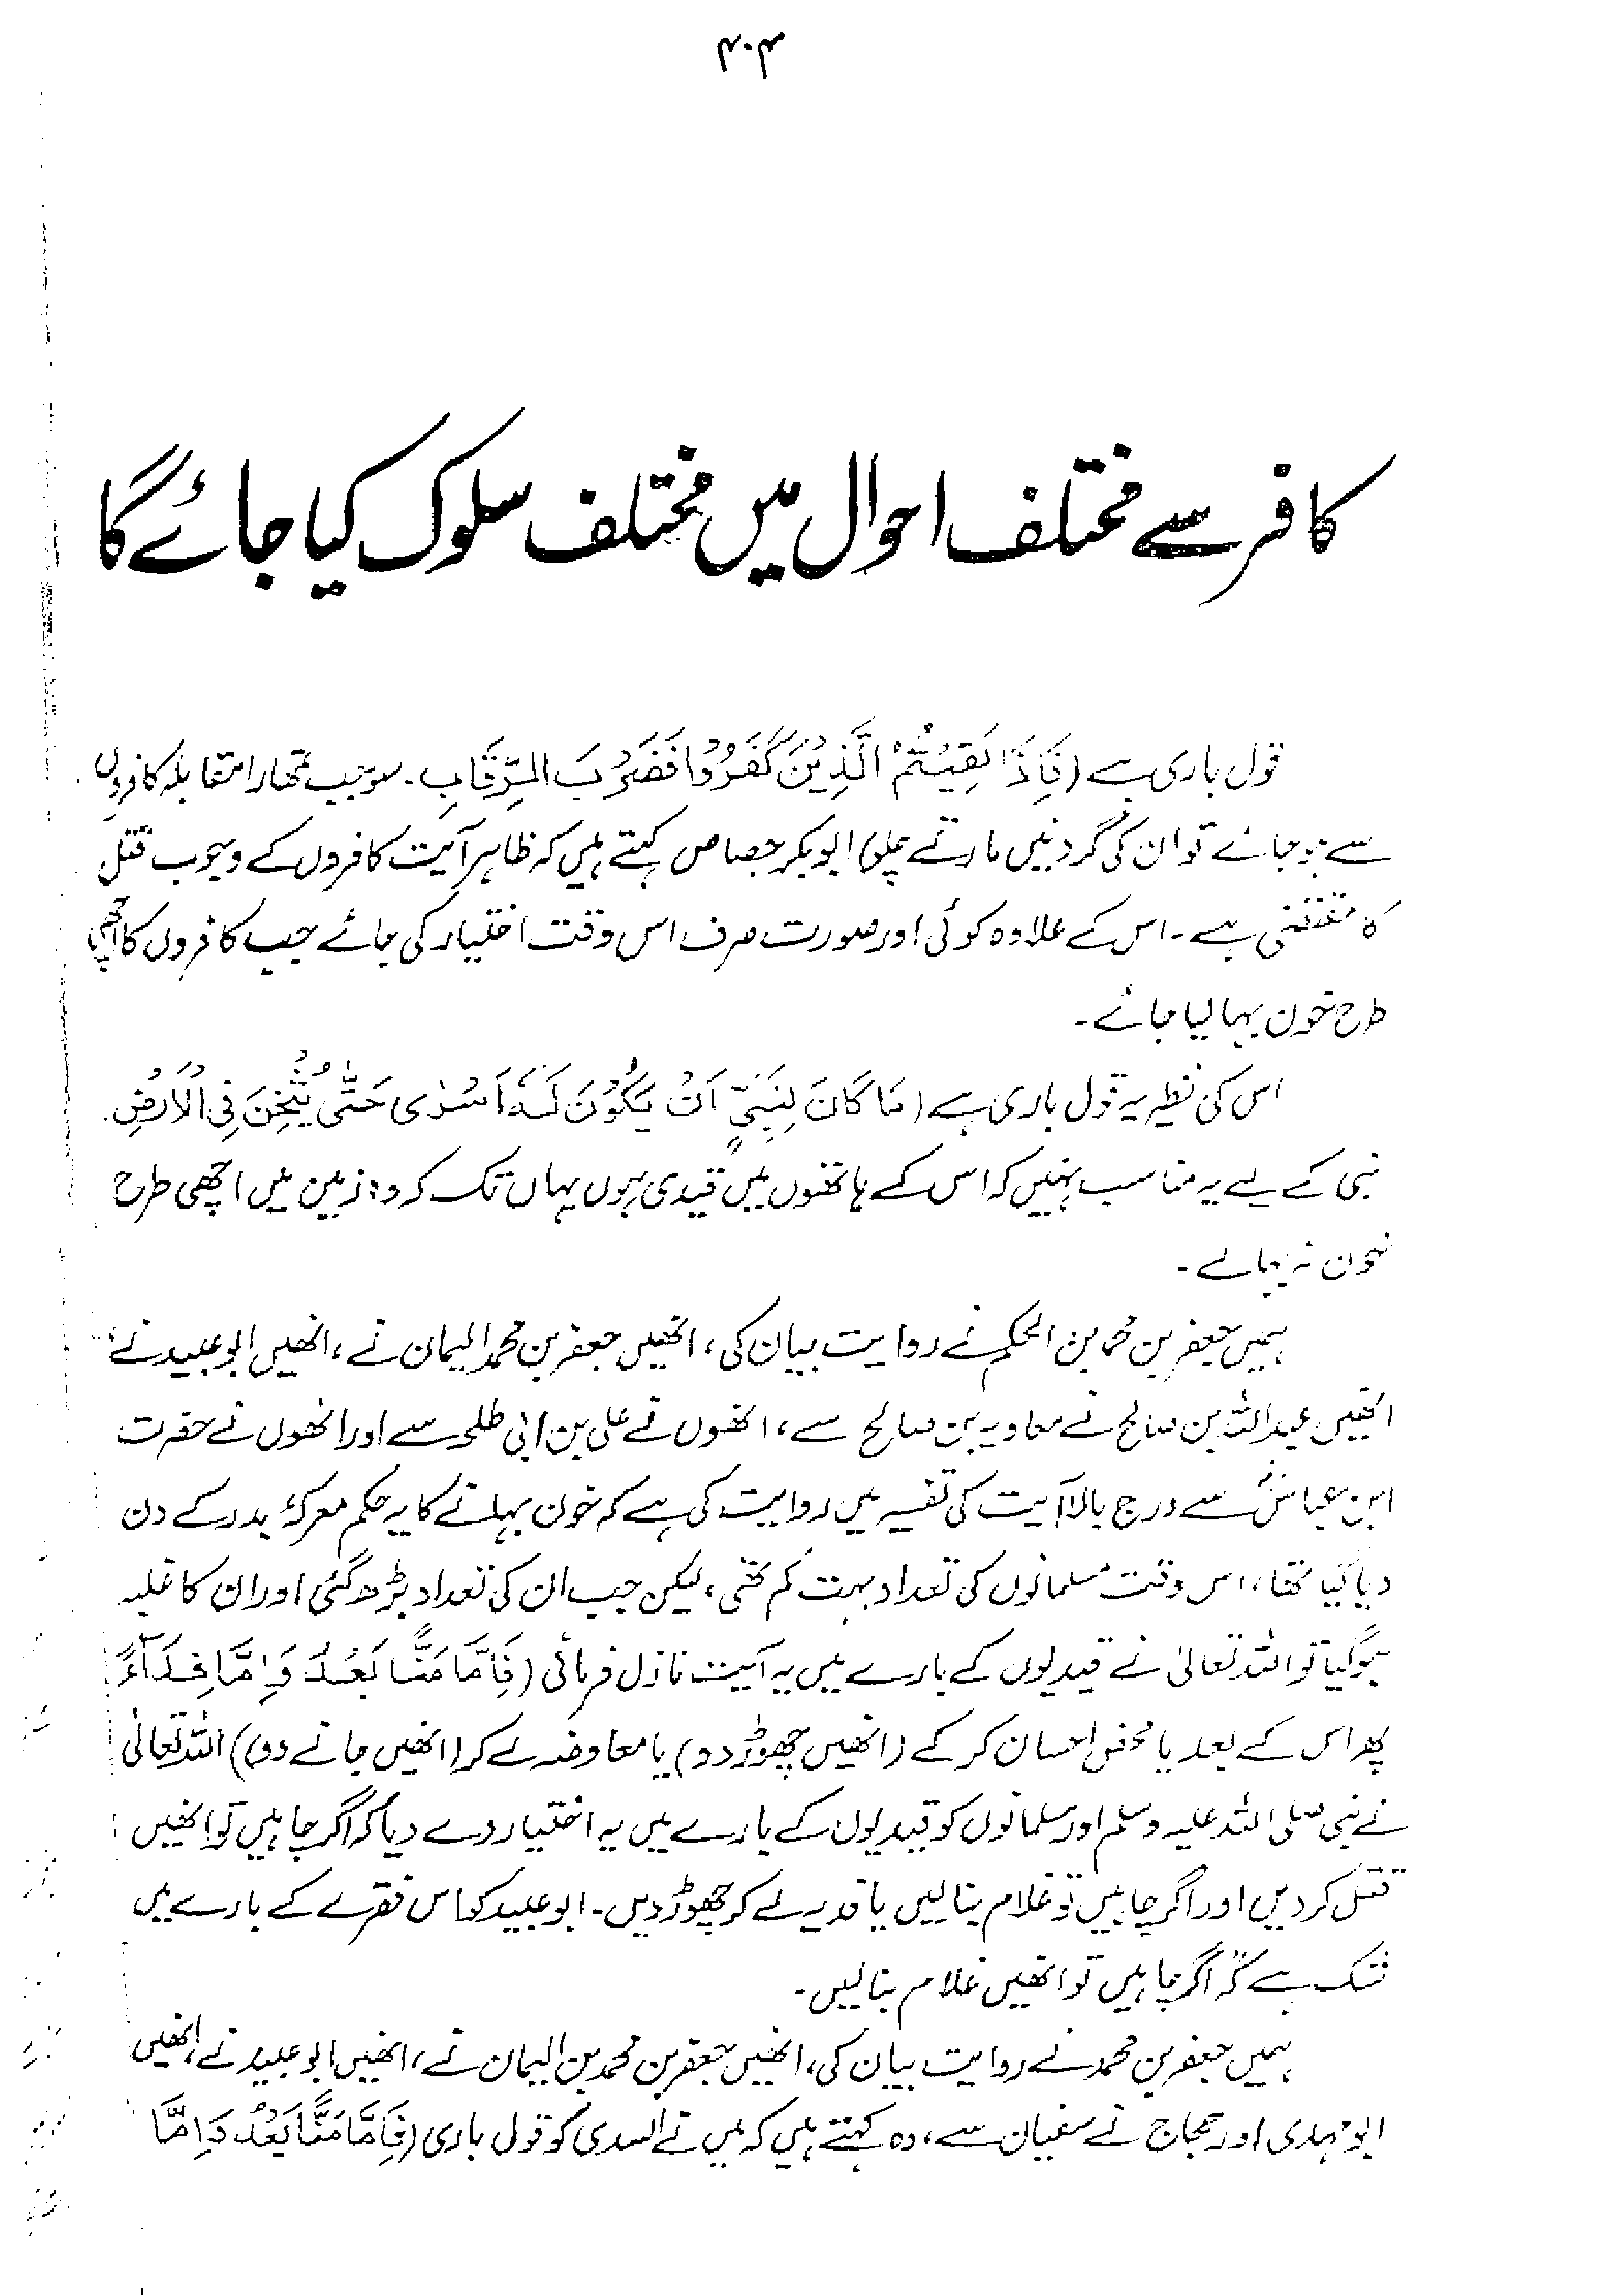 ۴۰۴
کافر سے مختلف احوال میں مختلف سلوک کیا جائے گا
قول باری ہے (فَاِذَا لَقِيْتُمُ الَّذِيْنَ كَفَرُوْا فَضَرْبَ الرِّقَابِ۔ سو جب تمھارا مقابلہ کافروں
سے ہو جائے تو ان کی گردنیں مارتے چلو) ابوبکر جصاص کہتے ہیں کہ ظاہر آیت کافروں کے وجوب قتل
کا مقتضی ہے۔ اس کے علاوہ کوئی اور صورت صرف اس وقت اختیار کی جائے جب کافروں کا اچھی
طرح خون بہا لیا جائے۔
اس کی نظیر یہ قول باری ہے (مَا كَانَ لِنَبِيٍّ اَنْ يَكُوْنَ لَهٗ اَسْرٰى حَتّٰى يُثْخِنَ فِى الْاَرْضِ۔
نبی کے لیے یہ مناسب نہیں کہ اس کے ہاتھوں میں قیدی ہوں یہاں تک کہ وہ زمین میں اچھی طرح
خون نہ بہالے۔
ہمیں جعفر بن محمد بن الحکم نے روایت بیان کی، انھیں جعفر بن محمد الیمان نے، انھیں ابوعبید نے
انھیں عبداللہ بن صالح نے معاویہ بن صالح سے، انھوں نے علی بن ابی طلحہ سے اور انھوں نے حضرت
ابن عباسؓ سے درج بالا آیت کی تفسیر میں روایت کی ہے کہ خون بہانے کا یہ حکم معرکۂ بدر کے دن
دیا گیا تھا، اس وقت مسلمانوں کی تعداد بہت کم تھی، لیکن جب ان کی تعداد بڑھ گئی اور ان کا غلبہ
ہو گیا تو اللہ تعالیٰ نے قیدیوں کے بارے میں یہ آیت نازل فرمائی (فَاِمَّا مَنًّا بَعْدُ وَاِمَّا فِدَآءً
پھر اس کے بعد یا محض احسان کر کے (انھیں چھوڑ دو) یا معاوضہ لے کر (انھیں جانے دو)) اللہ تعالیٰ
نے نبی صلی اللہ علیہ وسلم اور مسلمانوں کو قیدیوں کے بارے میں یہ اختیار دے دیا کہ اگر چاہیں تو انھیں
قتل کر دیں اور اگر چاہیں تو غلام بنا لیں یا فدیہ لے کر چھوڑ دیں۔ ابوعبید کو اس فقرے کے بارے میں
شک ہے کہ "اگر چاہیں تو انھیں غلام بنا لیں۔
ہمیں جعفر بن محمد نے روایت بیان کی، انھیں جعفر بن محمد بن الیمان نے، انھیں ابوعبید نے، انھیں
ابومہدی اور حجاج نے سفیان سے، وہ کہتے ہیں کہ میں نے السدی کو قول باری (فَاِمَّا مَنًّا بَعْدُ وَاِمَّا